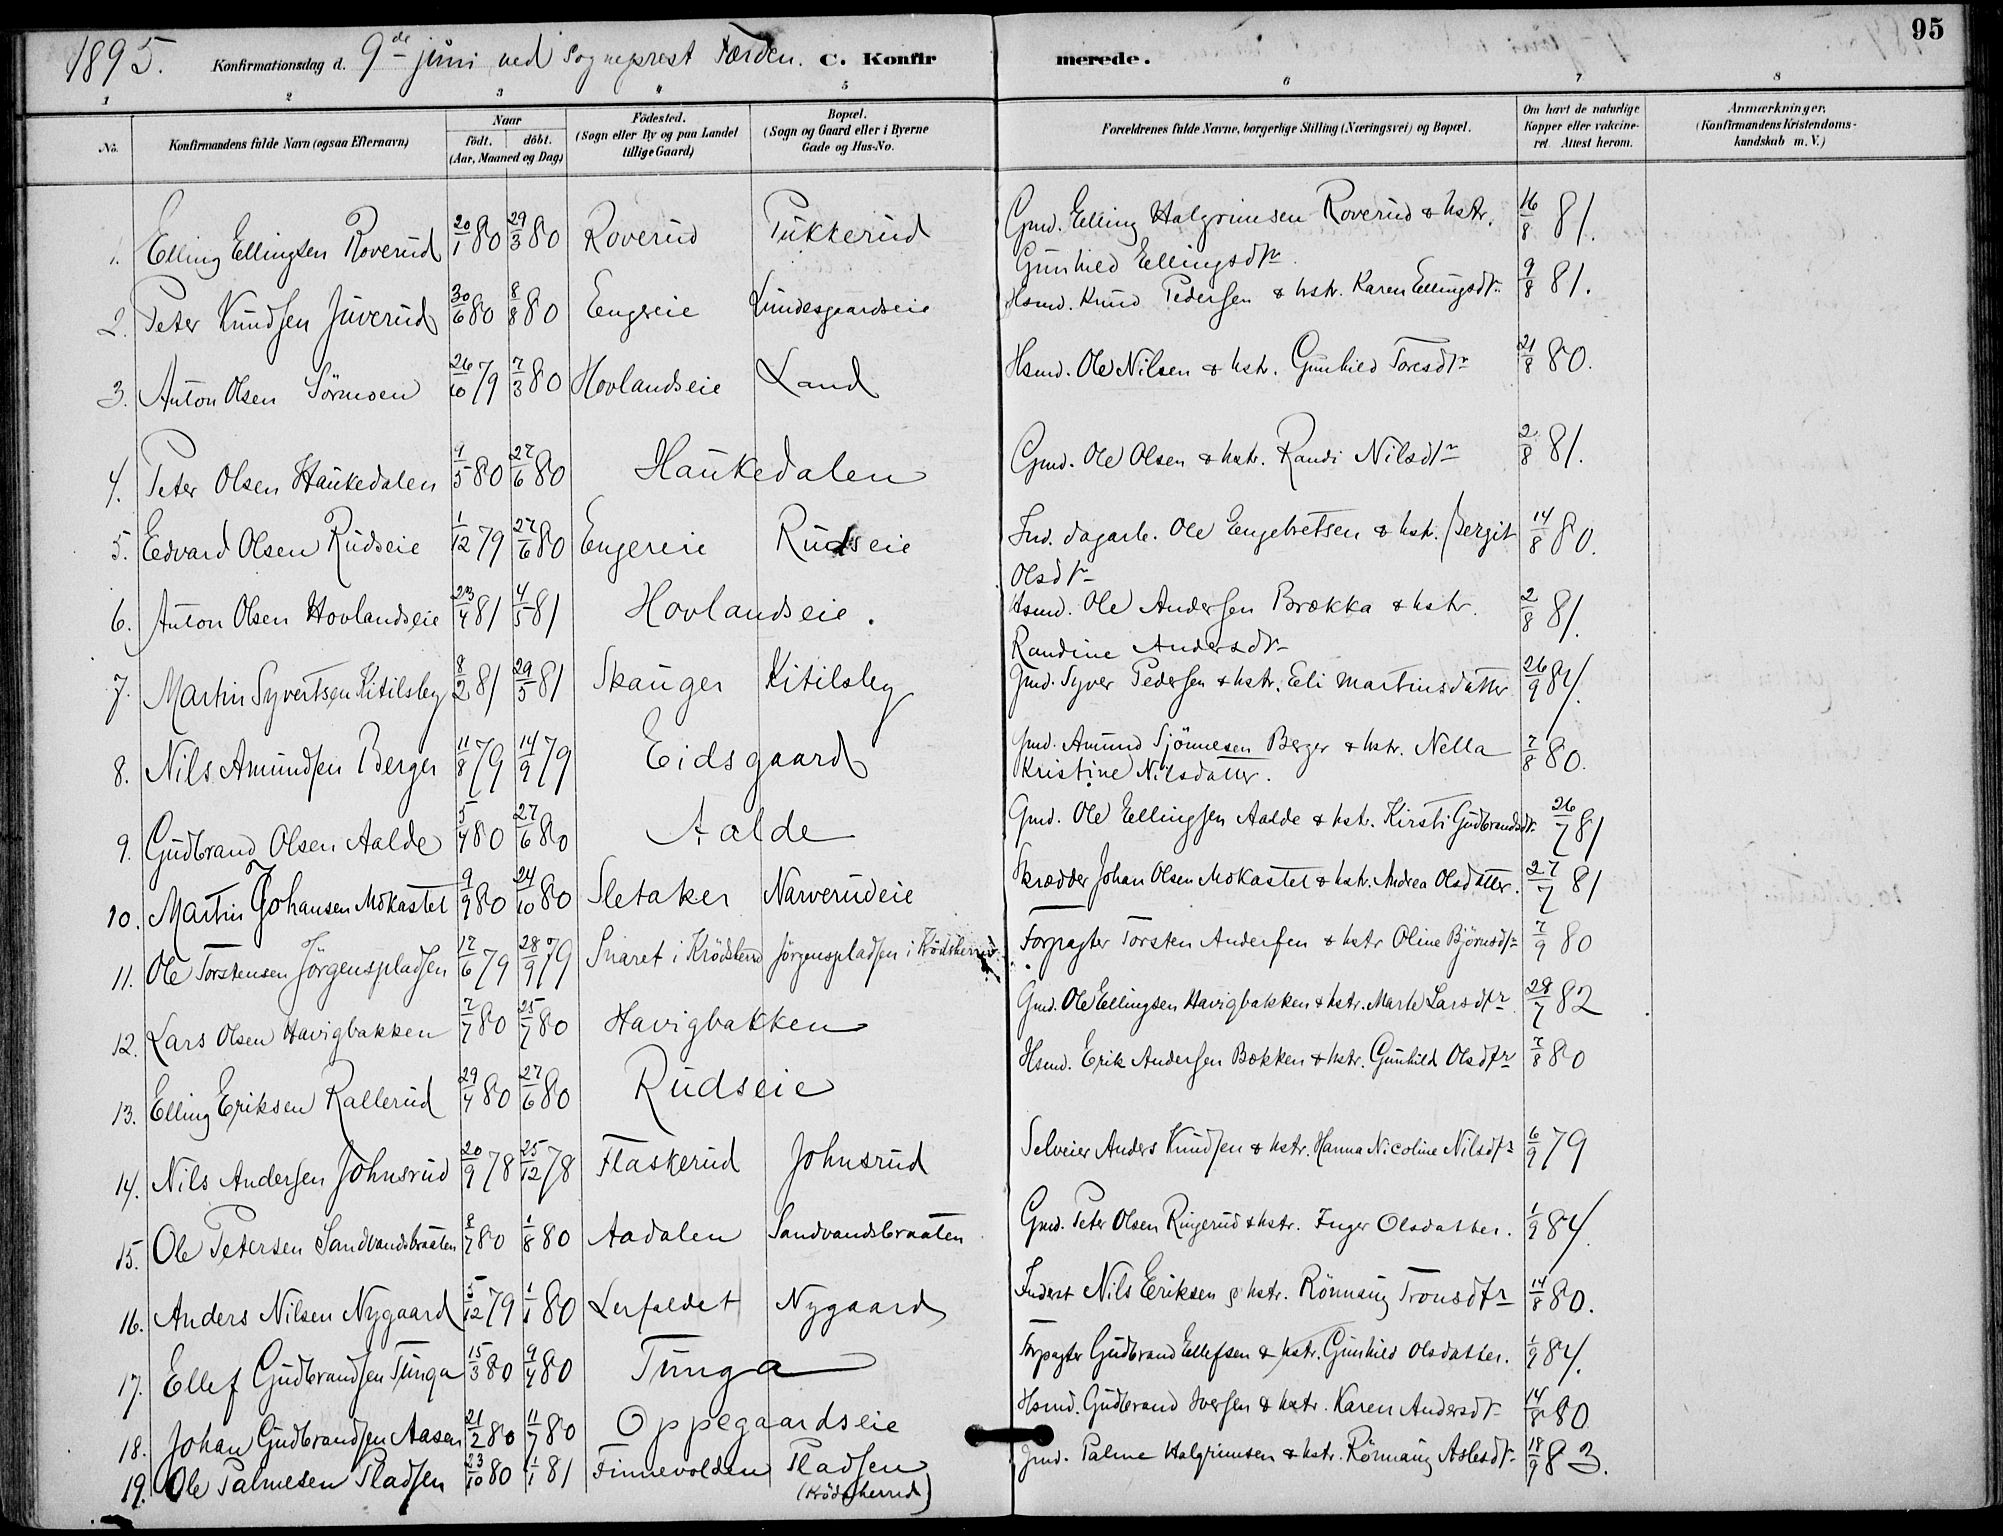 95
1895. Konfirmationsdag d. 9de juni ved Sogneprest Færden. C. Konfirmerede.
1 2 3 4 5 6 7 8
No. Konfirmandens fulde Navn (ogsaa Efternavn) Naar født. døbt. (Aar, Maaned og Dag) Födested. (Sogn eller By og paa Landet tillige Gaard) Bopæl. (Sogn og Gaard eller i Byerne Gade og Hus-No. Forældrenes fulde Navne, borgerlige Stilling (Næringsvei) og Bopæl. Om havt de naturlige Kopper eller vakcineret. Attest herom. Anmærkninger. (Konfirmandens Kristendomskundskab m. V.)
1. Elling Ellingsen Roverud 20/1 80 29/3 80 Roverud Pukkerud Gmd. Elling Halgrimsen Roverud & hstr. Gunhild Ellingsdtr 16/8 81.
2. Peter Knudsen Juverud 30/6 80 8/8 80 Engereie Lundesgaardseie Hsmd. Knud Pedersen & hstr. Karen Ellingsdtr. 9/8 81.
3. Anton Olsen Sörmoen 26/10 79 7/3 80 Hovlandseie Land Hsmd. Ole Nilsen & hstr. Gunhild Toresdtr 21/8 80.
4. Peter Olsen Haukedalen 9/5 80 27/6 80 Haukedalen Gmd. Ole Olsen & hstr. Randi Nilsdtr 2/8 81.
5. Edvard Olsen Rudseie 1/12 79 27/6 80 Engereie Rudseie Ind. dagarb. Ole Engebretsen & hstr. Bergit Olsdtr 14/8 80.
6. Anton Olsen Hovlandseie 23/4 81 4/5 81 Hovlandseie. Hsmd. Ole Andersen Brækka & hstr. Randine Andersdtr 2/8 81.
7. Martin Syvertsen Kitilsby 8/2 81 29/5 81 Skauger Kitilsby Gmd. Syver Pedersen & hstr. Eli Martinsdatter 26/9 84.
8. Nils Amundsen Berger 11/8 79 14/9 79 Eidsgaard Gmd. Amund Sjönnesen Berger & hstr. Nella Kristine Nilsdatter. 7/8 80.
9. Gudbrand Olsen Aalde 5/4 80 27/6 80 Aalde Gmd. Ole Ellingsen Aalde & hstr. Kirsti Gudbrandsdtr 26/7 81
10. Martin Johansen Mokastet 9/9 80 24/10 80 Sletaker Narverudeie Skrædder Johan Olsen Mokastet & hstr. Andrea Olsdatter. 27/7 81
11. Ole Torstensen Jörgenspladsen 17/6 79 28/9 79 Snaret i Krödsherred Jörgenspladsen i Krödsherred. Forpagter Torsten Andersen & hstr Oline Björnsdtr 7/9 80
12. Lars Olsen Havigbakken 7/7 80 25/7 80 Havigbakken Gmd. Ole Ellingsen Havigbakken & hstr. Marte Larsdtr 28/7 82
13. Elling Eriksen Rallerud 29/4 80 27/6 80 Rudseie Hsmd. Erik Andersen Bakken & hstr. Gunhild Olsdtr 7/8 80
14. Nils Andersen Johnsrud 20/9 78 25/12 78 Flaskerud Johnsrud Selveier Anders Knudsen & hstr. Hanna Nicoline Nilsdtr 6/9 79
15. Ole Petersen Sandvandsbraaten 8/7 80 1/8 80 Aadalen Sandvandsbraaten Gmd. Peter Olsen Ringerud & hstr. Inger Olsdatter. 1/9 84.
16. Anders Nilsen Nygaard 5/12 79 1/1 80 Lerfaldet Nygaard Inderst Nils Eriksen & hstr. Rönnaug Tronsdtr 14/8 80.
17. Ellef Gudbrandsen Tunga 15/3 80 9/4 80 Tunga Forpagter Gudbrand Ellefsen & hstr. Gunhild Olsdatter. 1/9 84.
18. Johan Gudbrandsen Aasen 21/2 80 11/7 80 Oppegaardseie Hsmd. Gudbrand Iversen & hstr. Karen Andersdtr 14/8 80
19. Ole Palmesen Pladsen 23/10 80 1/1 81 Finnevolden Pladsen (Krödsherred) Gmd. Palme Halgrimsen & hstr. Rönnaug Aslesdtr 18/9 83.